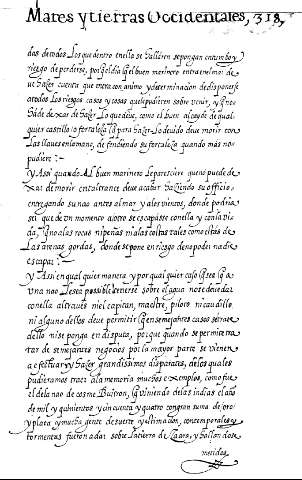 Mares y tierras Occidentales, 318,
dos de todos los que dentro en ella se hallaren se pongan
riesgo de perderse, por el dia q̃ el buen marinero entra en el mar de
ue hazer cuenta que entra con animo y determinacion de disponerse
a todos los riesgos casos y cosas que le pudieren sobre venir, y q̃ no
ha de dexar de hazer lo que deue, como el buen alcayde de qual
quier castillo o fortaleza q̃ para hazer lo deuido deue morir con
las llaues en la mano, defendiendo su fortaleza quando mas no
pudiere
Y Assi quando Al buen marinero le paresciere que no puede de
xar de morir en tal trance deue acabar haziendo su officio
entregando su nao antes al mar y a los vientos, donde podria
ser que de vn momento a otro se escapasse con ella y con la vi
da, q̃ no a las rocas ni peñas ni a las costas tales como estas de
las arenas gordas, donde se pone en riesgo de no poder nadie
escapar
Y Assi en qual quier manera y por qual quier caso q̃ sea q̃ a
vna nao le sea possible tenerse sobre el agua no se deue dar
con ella al traues ni el capitan, maestre, piloto ni caudillo
ni alguno dellos deue permitir q̃ en semejantes casos se trate
dello ni se ponga en disputa, porque quando se permite tra
tar de semejantes negocios por la mayor parte se vienen
a effectuar y hazer grandissimos disparates, de los quales
pudieramos traer a la memoria muchos exemplos, como fue
el de la nao de cosme Buitron, q̃ viniendo de las indias el año
de mil y quinientos y cincuenta y quatro con gran suma de oro
y plata y mucha gente de suerte y estimacion, con temporales y
tormentas fueron a dar sobre la tierra de Zaara, y hallandose
metidos